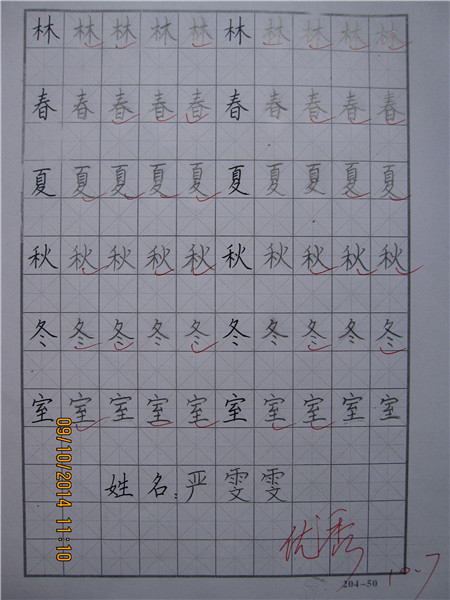 林林林林林林林林林林
春春春春春春春春春春
夏夏夏夏夏夏夏夏夏夏
秋秋秋秋秋秋秋秋秋秋
冬冬冬冬冬冬冬冬冬冬
室室室室室室室室室室
姓名:严雯雯
优秀
204-50
10.7
09/10/2014 11:10